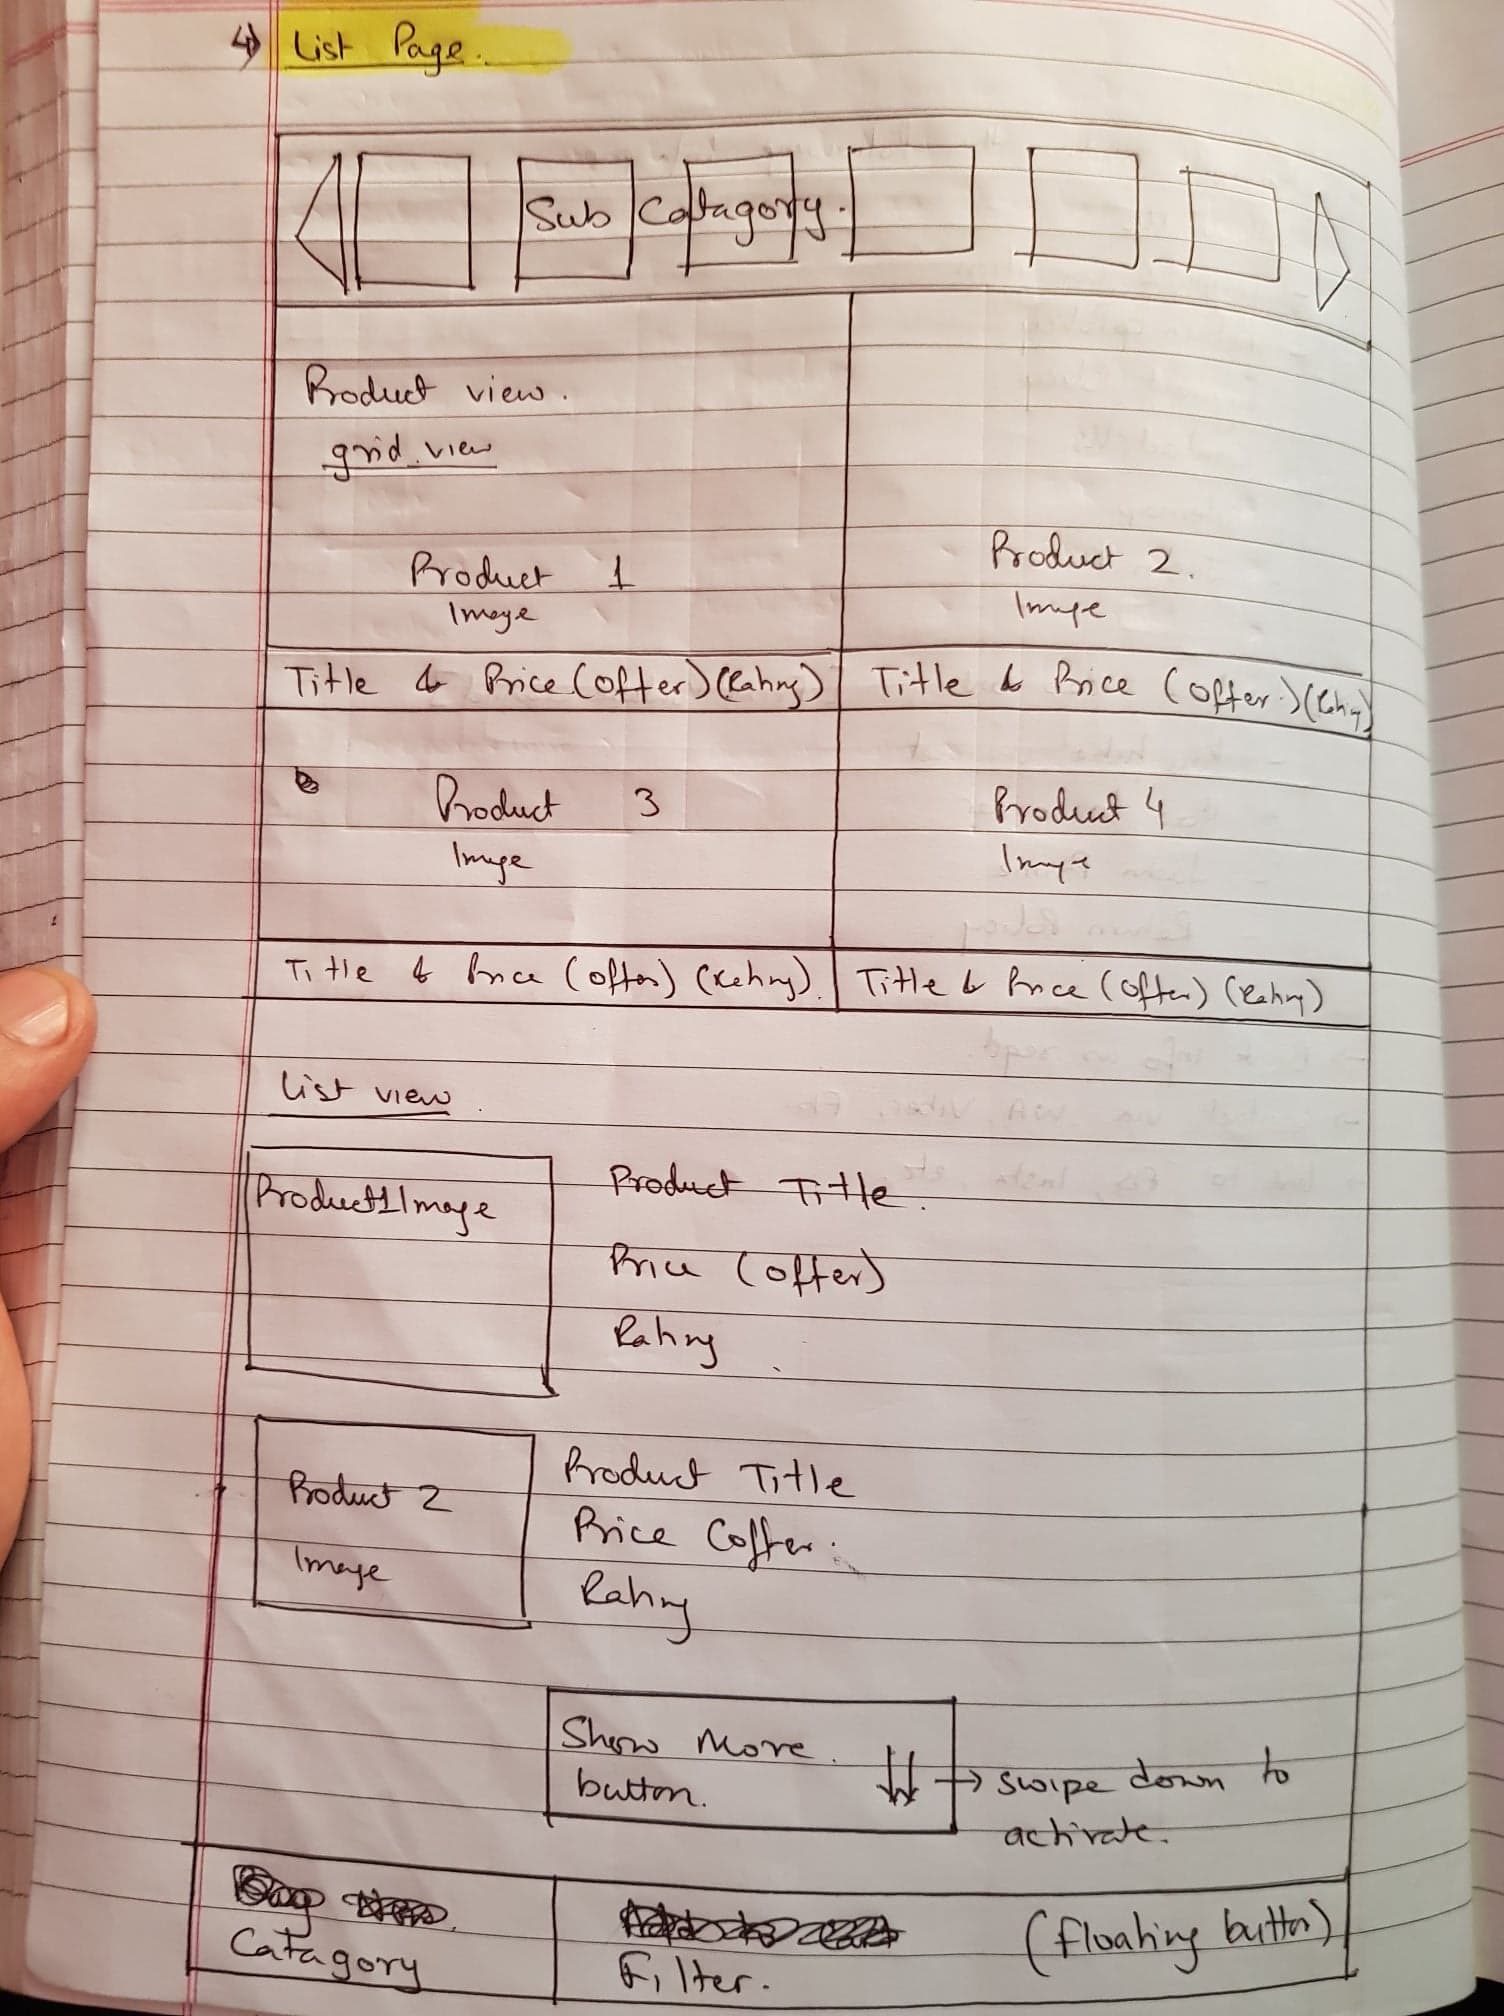 4) List Page.
Sub Catagory.
Product view.
grid view
Product 1
Image
Product 2.
Image
Title & Price (offer) (Rating)
Title & Price (offer.) (Rating)
Product 3
Image
Product 4
Image
Title & Price (offer) (Rating).
Title & Price (offer) (Rating)
List view.
Product 1 Image
Product Title.
Price (offer)
Rating
Product 2
Image
Product Title
Price (offer.
Rating
Show More.
button.
→ swipe down to
activate.
Catagory
Filter.
(floating button)